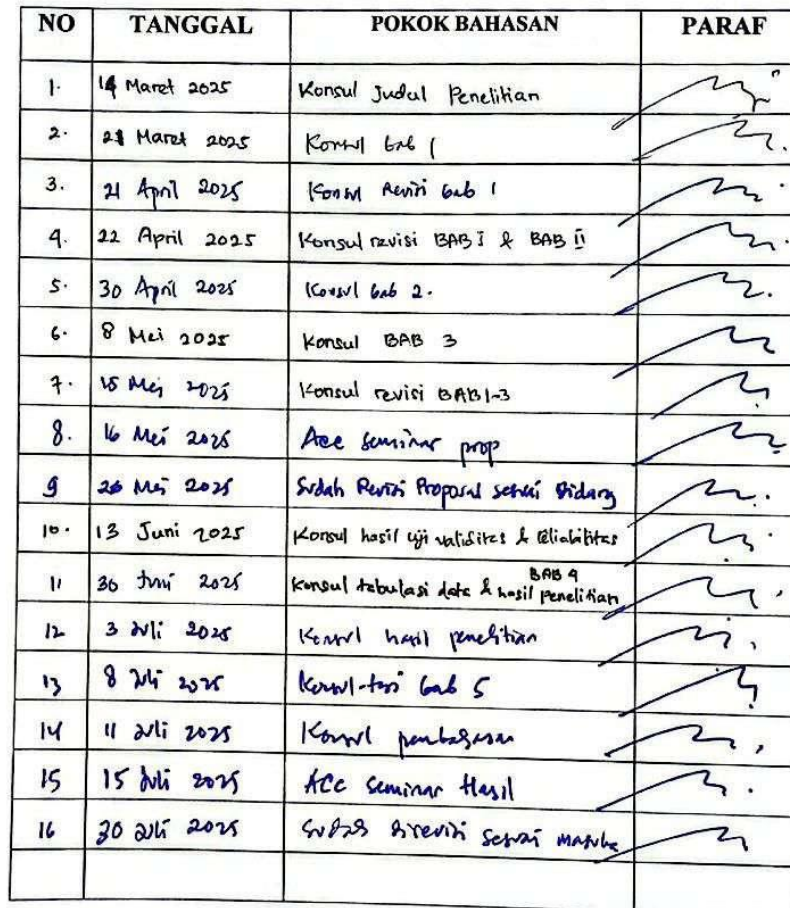 NO TANGGAL POKOK BAHASAN PARAF
1. 14 Maret 2025 Konsul Judul Penelitian
2. 21 Maret 2025 Konsul bab 1
3. 21 April 2025 Konsul Revisi bab 1
4. 22 April 2025 Konsul revisi BAB I & BAB II
5. 30 April 2025 Konsul bab 2.
6. 8 Mei 2025 Konsul BAB 3
7. 15 Mei 2025 Konsul revisi BAB 1-3
8. 16 Mei 2025 Acc seminar prop
9 26 Mei 2025 Sudah Revisi Proposal sesuai Sidang
10. 13 Juni 2025 Konsul hasil uji validitas & reliabilitas
BAB 4
11 30 Juni 2025 Konsul tabulasi data & hasil penelitian
12 3 Juli 2025 Konsul hasil penelitian
13 8 Juli 2025 Konsul-tasi bab 5
14 11 Juli 2025 Konsul pembahasan
15 15 Juli 2025 ACC seminar Hasil
16 30 Juli 2025 Sudah direvisi sesuai